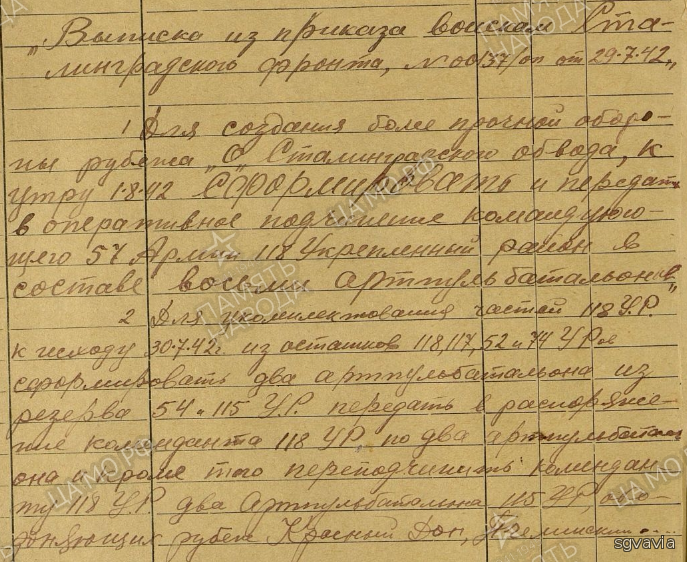 „Выписка из приказа войскам Ста-
линградского фронта, №00137/оп от 29.7.42„
1 Для создания более прочной оборо-
ны рубежа „О„ Сталинградского обвода, к
утру 1.8.42 сформировать и передать
в оперативное подчинение командую-
щего 57 Армии 118 Укрепленный район в
составе восьми артпульбатальонов„
2 Для укомплектования частей 118 У.Р.
к исходу 30.7.42г. из остатков 118, 117, 52 и 74 УР
сформировать два артпульбатальона из
резерва 54 и 115 У.Р. передать в распоряже-
ние коменданта 118 УР, по два артпульбаталь
она и кроме того переподчинить комендан
ту 118 У.Р. два артпульбатальона 115 УР, обо-
роняющих рубеж Красный Дон,
ЦАМО.РФ
ПАМЯТЬ
НАРОДА
sgvavia